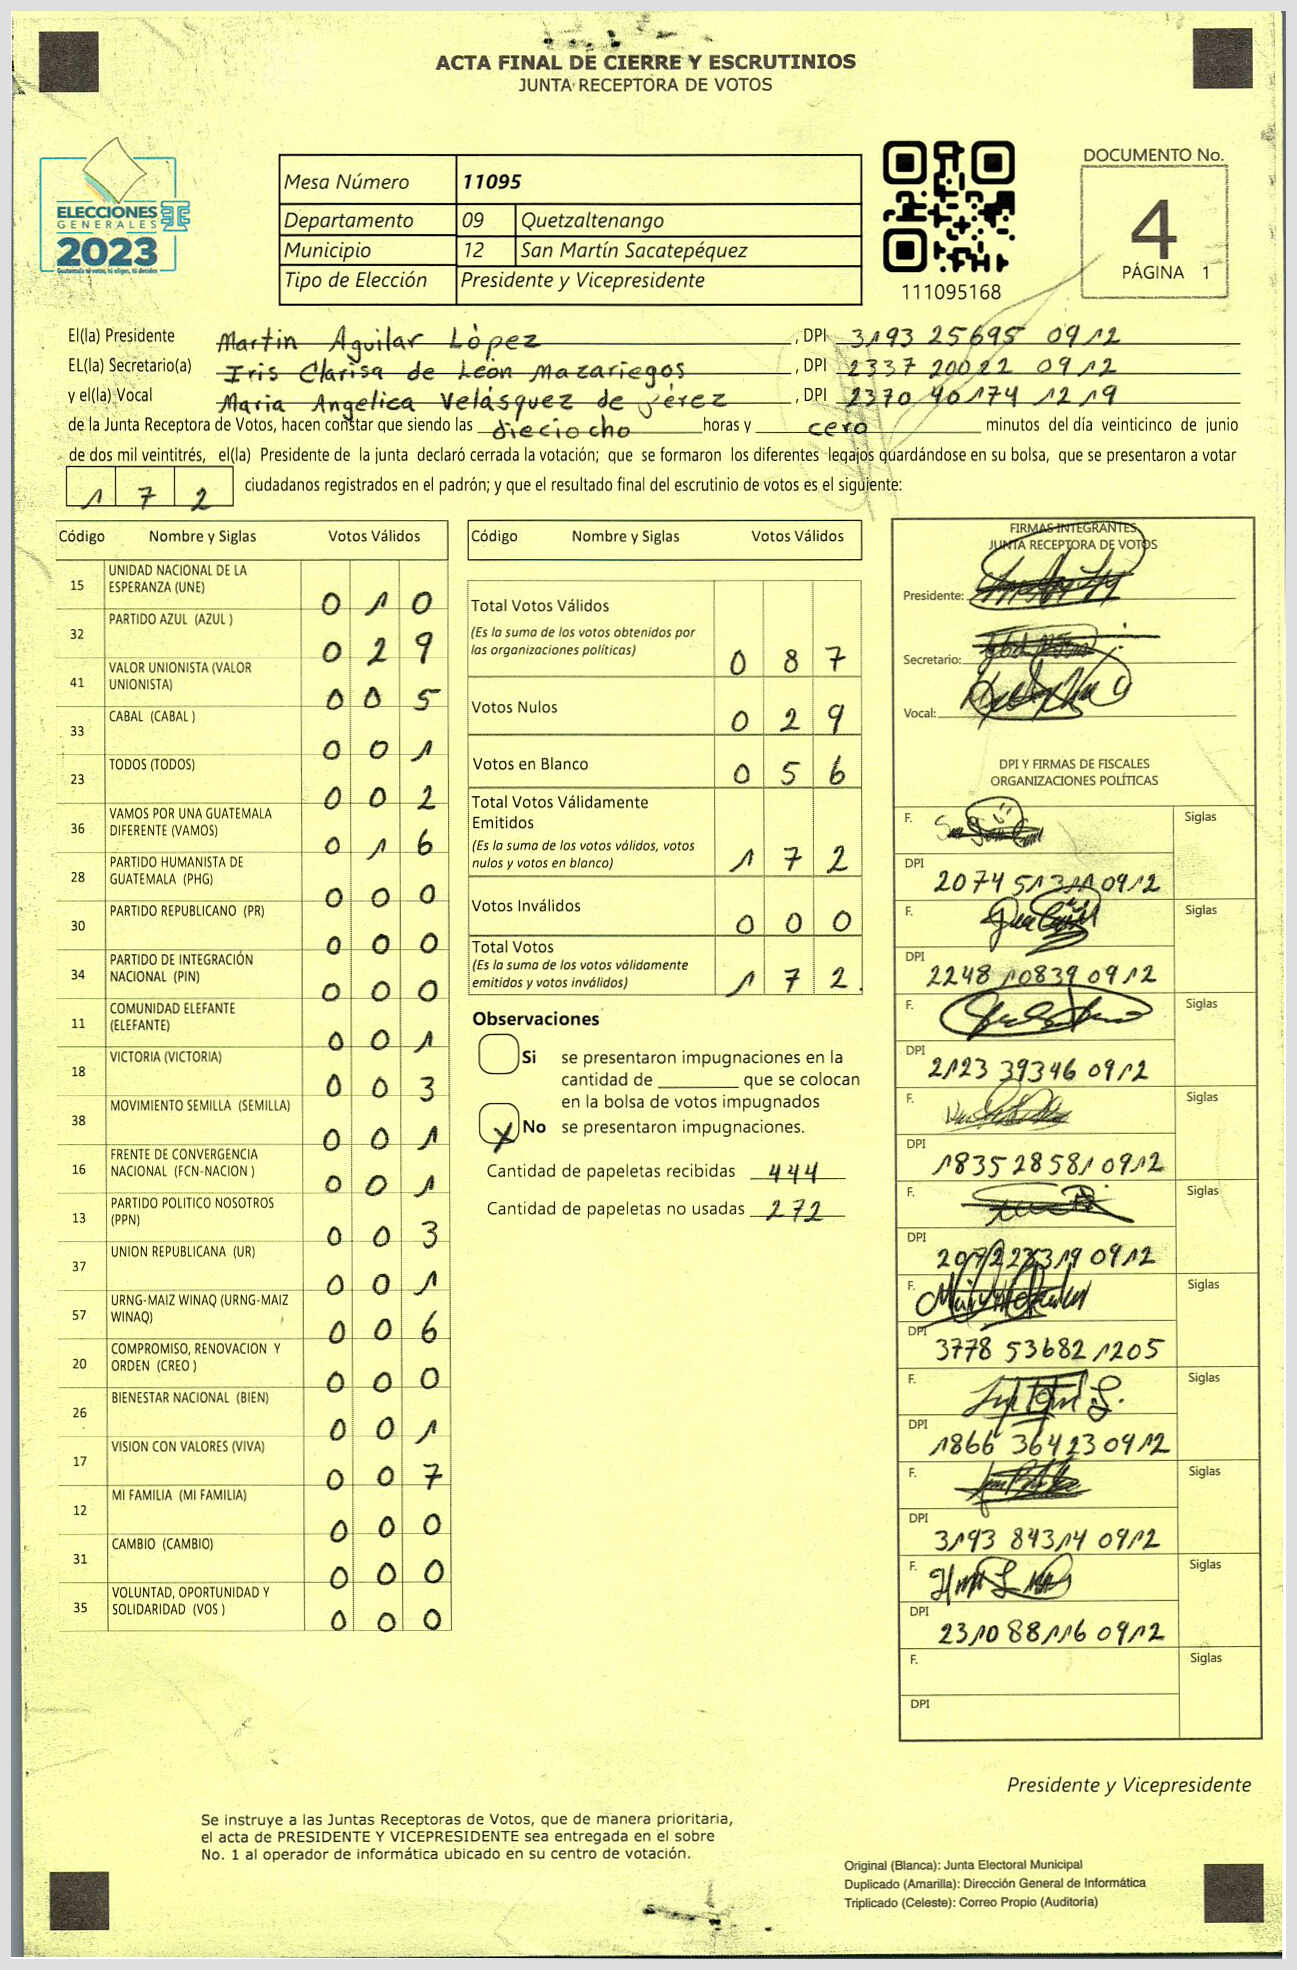 ACTA FINAL DE CIERRE Y ESCRUTINIOS
JUNTA RECEPTORA DE VOTOS
ELECCIONES
GENERALES
2023
Guatemala tú votas, tú eliges, tú decides
Mesa Número 11095
Departamento 09 Quetzaltenango
Municipio 12 San Martín Sacatepéquez
Tipo de Elección Presidente y Vicepresidente
111095168
DOCUMENTO No.
4
PÁGINA 1
El(la) Presidente Martin Aguilar López, DPI 3193 25695 0912
EL(la) Secretario(a) Iris Clarisa de León Mazariegos, DPI 2337 20022 0912
y el(la) Vocal Maria Angelica Velásquez de Pérez, DPI 2370 40174 1219
de la Junta Receptora de Votos, hacen constar que siendo las dieciocho horas y cero minutos del día veinticinco de junio
de dos mil veintitrés, el(la) Presidente de la junta declaró cerrada la votación; que se formaron los diferentes legajos guardándose en su bolsa, que se presentaron a votar
172 ciudadanos registrados en el padrón; y que el resultado final del escrutinio de votos es el siguiente:
Código Nombre y Siglas Votos Válidos
15 UNIDAD NACIONAL DE LA ESPERANZA (UNE) 010
32 PARTIDO AZUL (AZUL ) 029
41 VALOR UNIONISTA (VALOR UNIONISTA) 005
33 CABAL (CABAL ) 001
23 TODOS (TODOS) 002
36 VAMOS POR UNA GUATEMALA DIFERENTE (VAMOS) 016
28 PARTIDO HUMANISTA DE GUATEMALA (PHG) 000
30 PARTIDO REPUBLICANO (PR) 000
34 PARTIDO DE INTEGRACIÓN NACIONAL (PIN) 000
11 COMUNIDAD ELEFANTE (ELEFANTE) 001
18 VICTORIA (VICTORIA) 003
38 MOVIMIENTO SEMILLA (SEMILLA) 001
16 FRENTE DE CONVERGENCIA NACIONAL (FCN-NACION ) 001
13 PARTIDO POLITICO NOSOTROS (PPN) 003
37 UNION REPUBLICANA (UR) 001
57 URNG-MAIZ WINAQ (URNG-MAIZ WINAQ) 006
20 COMPROMISO, RENOVACION Y ORDEN (CREO ) 000
26 BIENESTAR NACIONAL (BIEN) 001
17 VISION CON VALORES (VIVA) 007
12 MI FAMILIA (MI FAMILIA) 000
31 CAMBIO (CAMBIO) 000
35 VOLUNTAD, OPORTUNIDAD Y SOLIDARIDAD (VOS ) 000
Código Nombre y Siglas Votos Válidos
Total Votos Válidos 087
(Es la suma de los votos obtenidos por
las organizaciones políticas)
Votos Nulos 029
Votos en Blanco 056
Total Votos Válidamente
Emitidos 172
(Es la suma de los votos válidos, votos
nulos y votos en blanco)
Votos Inválidos 000
Total Votos 172
(Es la suma de los votos válidamente
emitidos y votos inválidos)
Observaciones
Si se presentaron impugnaciones en la
cantidad de ________ que se colocan
en la bolsa de votos impugnados
X No se presentaron impugnaciones.
Cantidad de papeletas recibidas 444
Cantidad de papeletas no usadas 272
FIRMAS INTEGRANTES
JUNTA RECEPTORA DE VOTOS
Presidente:
Secretario:
Vocal:
DPI Y FIRMAS DE FISCALES
ORGANIZACIONES POLÍTICAS
F. Siglas
DPI 2074 51311 0912
F. Siglas
DPI 2248 10839 0912
F. Siglas
DPI 2123 39346 0912
F. Siglas
DPI 1835 28581 0912
F. Siglas
DPI 2072 28319 0912
F. Siglas
DPI 3778 53682 1205
F. Siglas
DPI 1866 36423 0912
F. Siglas
DPI 3193 84314 0912
F. Siglas
DPI 2310 88116 0912
F. Siglas
DPI
Presidente y Vicepresidente
Se instruye a las Juntas Receptoras de Votos, que de manera prioritaria,
el acta de PRESIDENTE Y VICEPRESIDENTE sea entregada en el sobre
No. 1 al operador de informática ubicado en su centro de votación.
Original (Blanca): Junta Electoral Municipal
Duplicado (Amarilla): Dirección General de Informática
Triplicado (Celeste): Correo Propio (Auditoría)